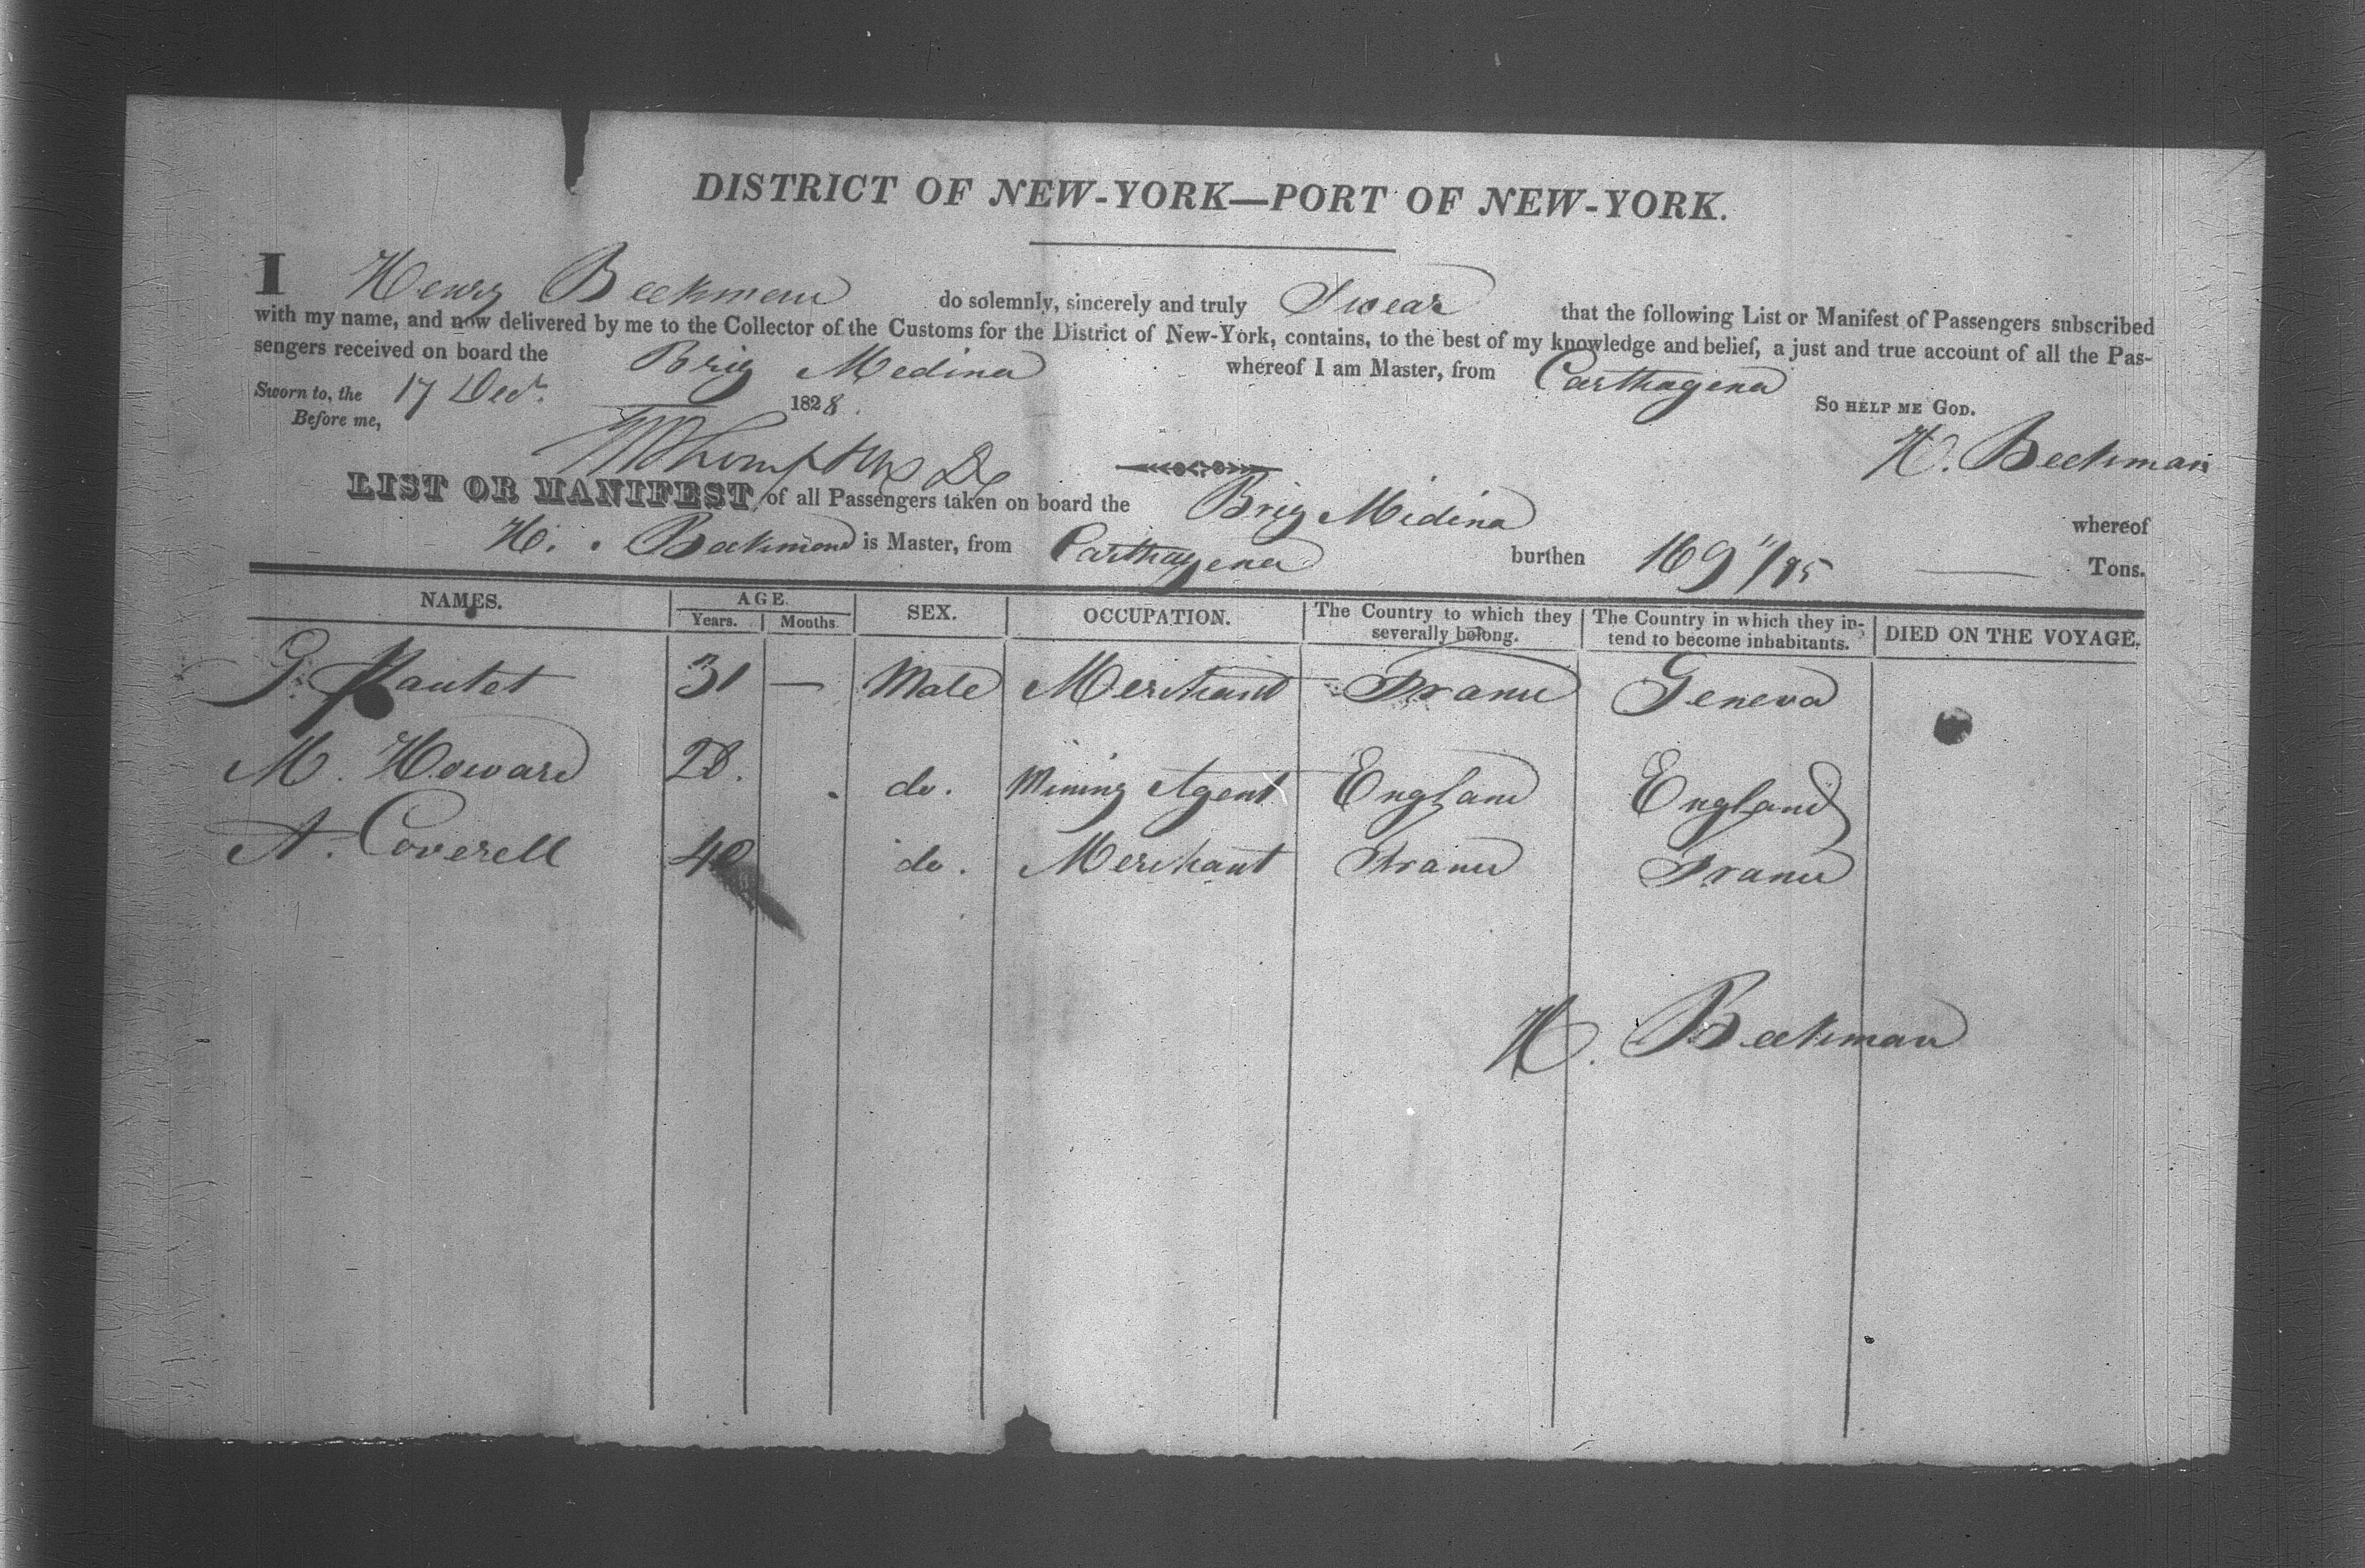 DISTRICT OF NEW-YORK—PORT OF NEW-YORK.
I Henry Beekman do solemnly, sincerely and truly Swear that the following List or Manifest of Passengers subscribed
with my name, and now delivered by me to the Collector of the Customs for the District of New-York, contains, to the best of my knowledge and belief, a just and true account of all the Pas-
sengers received on board the Brig Medina whereof I am Master, from Carthagena
Sworn to, the 17 Decr. 1828. So HELP ME GOD.
Before me,
H. Beekman
LIST OR MANIFEST of all Passengers taken on board the Brig Midina whereof
H. Beekman is Master, from Carthagena burthen 169 11/95 Tons.
NAMES. AGE. SEX. OCCUPATION. The Country to which they severally belong. The Country in which they in-tend to become inhabitants. DIED ON THE VOYAGE.
Years. Months.
G. Pautet 31 — Male Merchant France Geneva
M. Howard 28. do. Mining Agent England England
A. Coverell 40 do. Merchant France France
H. Beekman